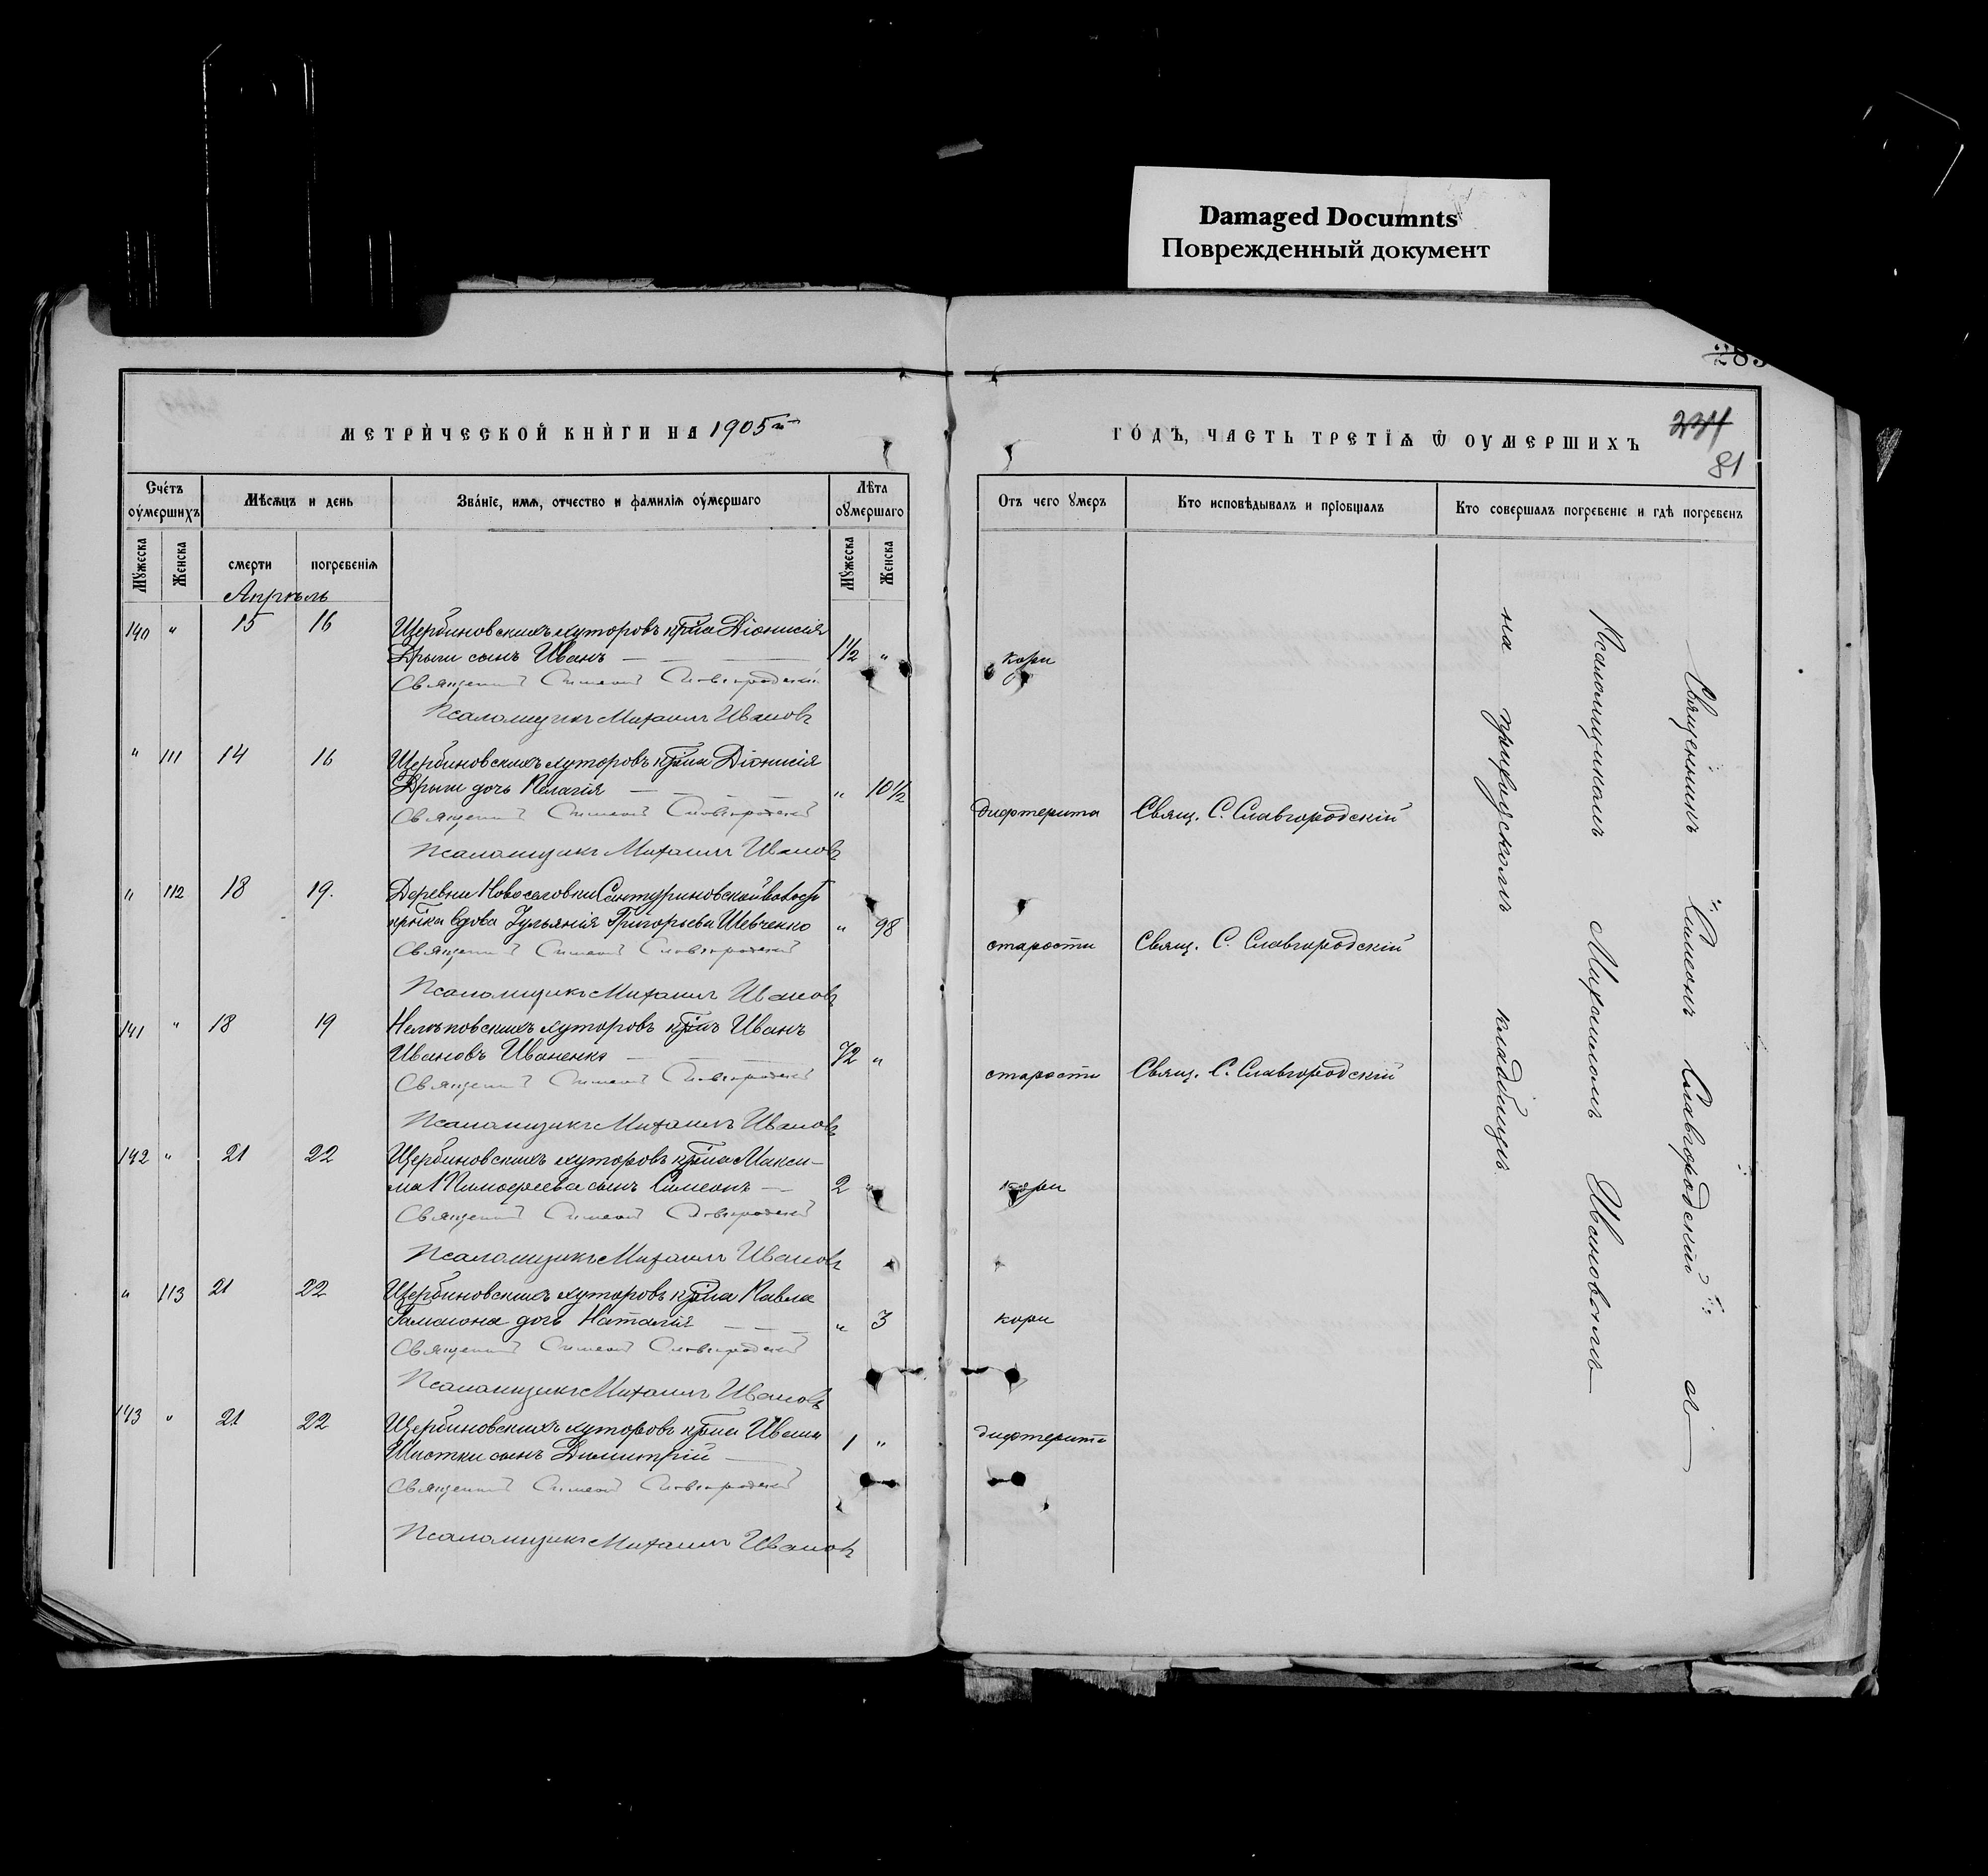 Damaged Documnts
Поврежденный документ
МЕТРИЧЕСКОЙ КНИГИ НА 1905й
ГОДЪ, ЧАСТЬ ТРЕТІѦ Ѿ ОУМЕРШИХЪ
234
81
Счетъ оумершихъ
Мѣсѧцъ и день
Званіе, имѧ, отчество и фамиліѧ оумершаго
Лѣта оумершаго
Отъ чего ꙋмеръ
Кто исповѣдывалъ и прїобщалъ
Кто совершалъ погребеніе и гдѣ погребенъ
Мꙋжеска
Женска
смерти
погребеніѧ
Мꙋжеска
Женска
Апрѣль
140 " 15 16 Щербиновскихъ хуторовъ кр-на Діонисія
Дрыги сынъ Иванъ — 1½ " кори
Священникъ Симеонъ Славгородскій
Псаломщикъ Михаилъ Ивановъ
" 111 14 16 Щербиновскихъ хуторовъ кр-на Діонисія
Дрыги дочь Пелагія — " 10½ дифтерита Свящ. С. Славгородскій
Священникъ Симеонъ Славгородскій
Псаломщикъ Михаилъ Ивановъ
" 112 18 19. Деревни Новоселовки Сантуриновской волост
кр-нка вдова Іульянія Григорьева Шевченко " 98 старости Свящ. С. Славгородскій
Священникъ Симеонъ Славгородскій
Псаломщикъ Михаилъ Ивановъ
141 " 18 19 Нелѣповскихъ хуторовъ кр-нъ Иванъ
Ивановъ Иваненко — 72 " старости Свящ. С. Славгородскій
Священникъ Симеонъ Славгородскій
Псаломщикъ Михаилъ Ивановъ
142 " 21 22 Щербиновскихъ хуторовъ кр-на Макси-
ма Тимофеева сынъ Симеонъ — 2 " кори
Священникъ Симеонъ Славгородскій
Псаломщикъ Михаилъ Ивановъ
" 113 21 22 Щербиновскихъ хуторовъ кр-на Павла
дочь Наталія — " 3 кори
Священникъ Симеонъ Славгородскій
Псаломщикъ Михаилъ Ивановъ
143 " 21 22 Щербиновскихъ хуторовъ кр-на Ивана
сынъ Димитрій — 1 " дифтерита
Священникъ Симеонъ Славгородскій
Псаломщикъ Михаилъ Ивановъ
Священникъ Симеонъ Славгородскій съ
Псаломщикомъ Михаиломъ Ивановымъ
на приходскомъ кладбищѣ